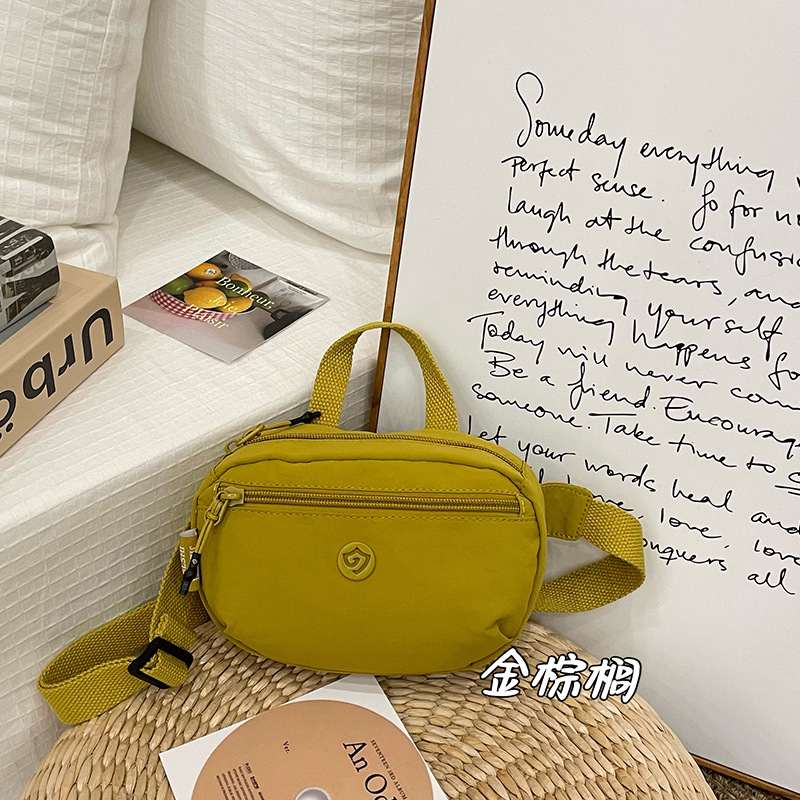 Someday everything
Perfect sense. So for
laugh at the confusio
through the tears, and
reminding yourself
everything happens fo
Today will never com
Be a friend. Encourag
someone. Take time to
Let your words heal and
love, love, love
onquers all
Bonheur,
Plaisir
Urb
金棕榈
SEVENTEEN 3RD ALBUM
An Od
Ver.